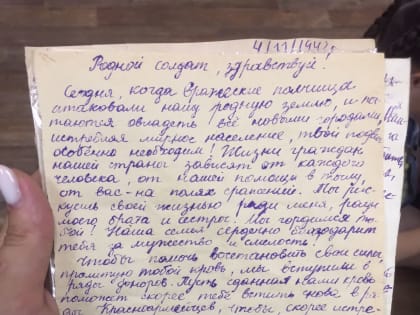 4/11/1942г.
Родной солдат, здравствуй!
Сегодня, когда вражеские полчища
атаковали нашу родную землю, и пы-
таются овладеть всё новыми городами,
истребляя мирное население, твой подвиг
особенно необходим! Жизни граждан
нашей страны зависят от каждого
человека, от нашей помощи в тылу,
от вас - на полях сражений. Ты рис-
куешь своей жизнью ради меня, ради
моего брата и сестры! Мы гордимся то-
бой! Наша семья сердечно благодарит
тебя за мужество и смелость!
Чтобы помочь восстановить свои силы,
пролитую тобой кровь, мы вступили в
ряды доноров. Пусть сданная нами кровь
поможет скорее тебе встать снова в ря-
ды красноармейцев, чтобы, скорее истре-